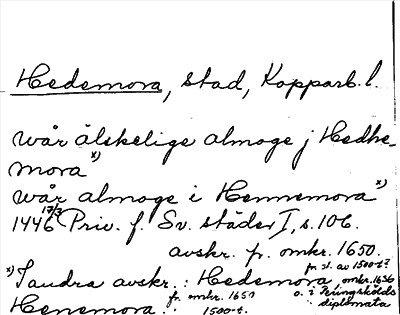 Hedemora, stad, Kopparb. l.
wår älskelige almoge j Hedhe-
mora x)
wår almoge i Hennemora x)
1446 17/3 Priv. f. Sv. städer I, s. 106.
avskr. fr. omkr. 1650.
x) I andra avskr.: Hedemora omkr. 1636 fr. sl. av 1500-t?
Henemora fr. omkr. 1650 o. i Peringskölds
1500-t. diplomata